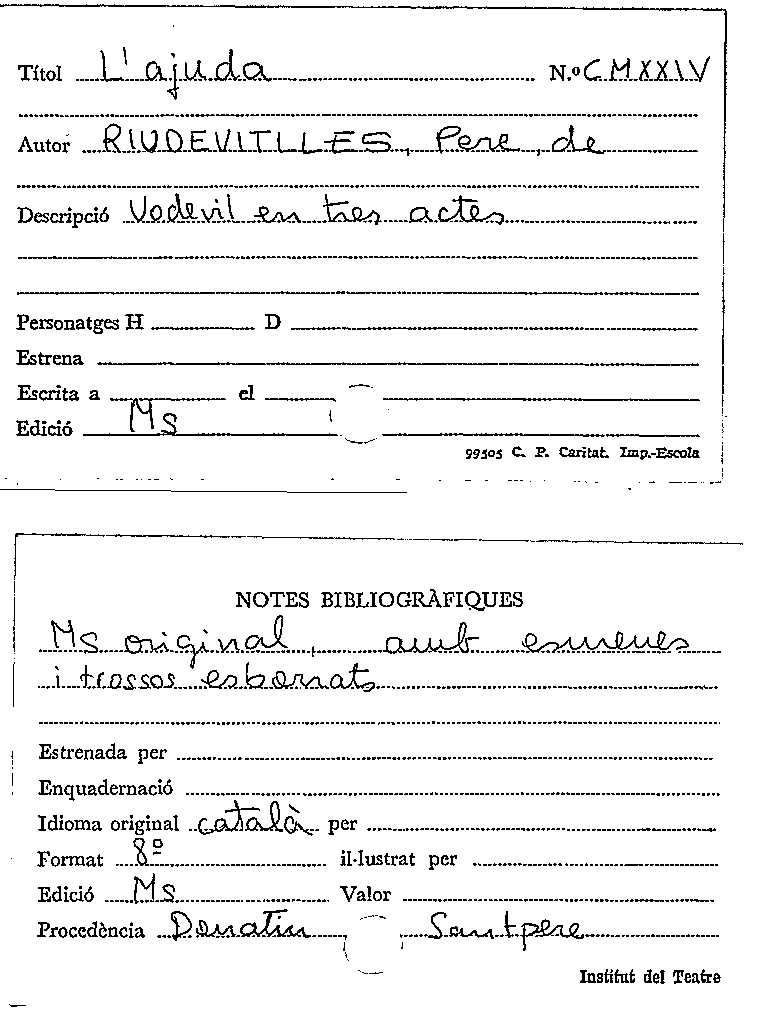 Títol L'ajuda N.º CMXXIV
Autor RIUDEVITLLES, Pere, de
Descripció Vodevil en tres actes
Personatges H D
Estrena
Escrita a el
Edició Ms
99505 C. P. Caritat. Imp.-Escola
NOTES BIBLIOGRÀFIQUES
Ms original, amb esmenes
i trossos esborrats
Estrenada per
Enquadernació
Idioma original català per
Format 8º il·lustrat per
Edició Ms Valor
Procedència Donatiu Santpere
Institut del Teatre